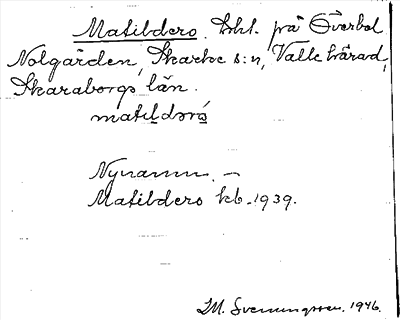 Matildero. tht. på Överbol
Nolgården, Skarke s:n, Valle härad,
Skaraborgs län.
matildəró
Nynamn. –
Matildero kb. 1939.
I.M. Svenningsson. 1946.